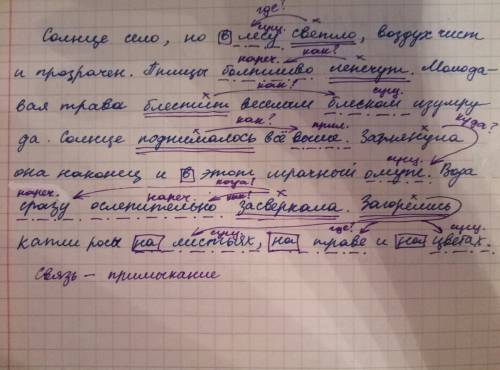 где? сущ.
Солнце село, но в лесу светло, воздух чист
нареч. как?
и прозрачен. Птицы болтливо лепечут. Молода-
как? сущ.
вая трава блестит веселым блеском изумру-
как? прил. куда?
да. Солнце поднималось всё выше. Заглянула
сущ.
она наконец и в этот мрачный омут. Вода
нареч. нареч. когда? как?
сразу ослепительно засверкала. Загорелись
сущ. где? сущ.
капли росы на листьях, на траве и на цветах.
Связь – примыкание